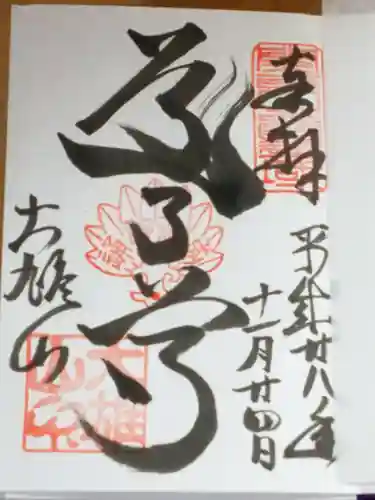 奉拝
平成廿八年
十一月廿四日
道了尊
大雄山